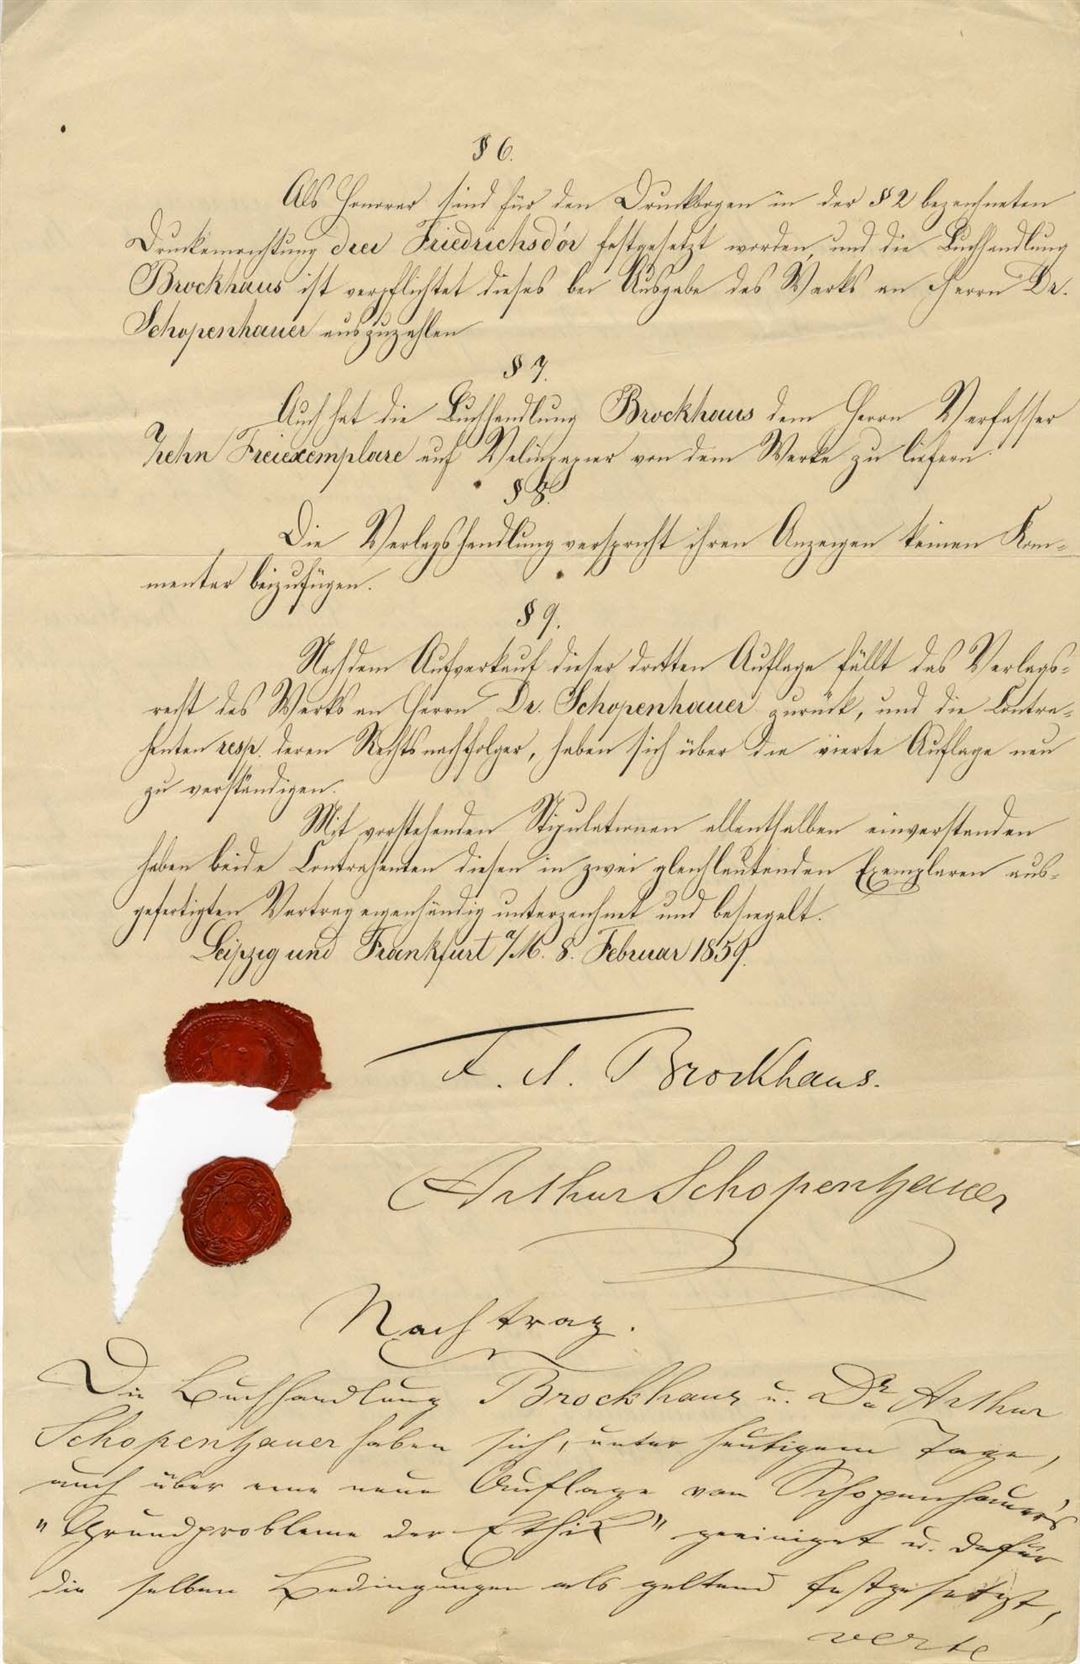 § 6.
Als Honorar sind für den Druckbogen in der § 2 bezeichneten
Druckeinrichtung drei Friedrichsdor festgesetzt worden, und die Buchhandlung
Brockhaus ist verpflichtet dieses bei Ausgabe des Werks an Herrn Dr.
Schopenhauer auszuzahlen
§ 7.
Auch hat die Buchhandlung Brockhaus dem Herrn Verfasser
zehn Freiexemplare auf Velinpapier von dem Werke zu liefern.
§ 8.
Die Verlagshandlung verspricht ihren Anzeigen keinen Kom=
mentar beizufügen.
§ 9.
Nach dem Aufverkauf dieser dritten Auflage fällt das Verlags=
recht des Werks an Herrn Dr. Schopenhauer zurück, und die Contra=
henten resp. deren Rechtsnachfolger, haben sich über die vierte Auflage neu
zu verständigen.
Mit vorstehenden Stipulationen allenthalben einverstanden
haben beide Contrahenten diesen in zwei gleichlautenden Exemplaren aus=
gefertigten Vertrag eigenhändig unterzeichnet und besiegelt.
Leipzig und Frankfurt a/M. 8. Februar 1859.
F. A. Brockhaus.
Arthur Schopenhauer
Nachtrag.
Die Buchhandlung Brockhaus u. Dr Arthur
Schopenhauer haben sich, unter heutigem Tage,
auch über eine neue Auflage von Schopenhauer's
"Grundprobleme der Ethik" geeinigt u. dafür
die selben Bedingungen als geltend festgesetzt,
verte